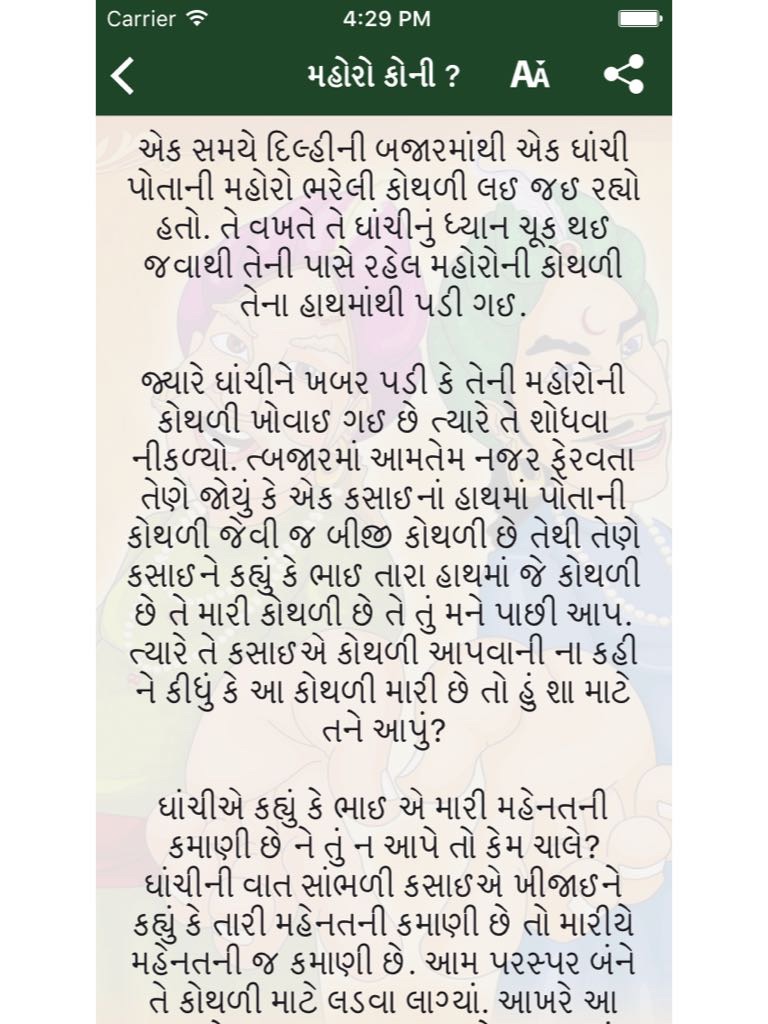 Carrier 4:29 PM
મહોરો કોની ?
AA
એક સમયે દિલ્હીની બજારમાંથી એક ઘાંચી
પોતાની મહોરો ભરેલી કોથળી લઈ જઈ રહ્યો
હતો. તે વખતે તે ઘાંચીનું ધ્યાન ચૂક થઈ
જવાથી તેની પાસે રહેલ મહોરોની કોથળી
તેના હાથમાંથી પડી ગઈ.
જ્યારે ઘાંચીને ખબર પડી કે તેની મહોરોની
કોથળી ખોવાઈ ગઈ છે ત્યારે તે શોધવા
નીકળ્યો. ત્બજારમાં આમતેમ નજર ફેરવતા
તેણે જોયું કે એક કસાઈનાં હાથમાં પોતાની
કોથળી જેવી જ બીજી કોથળી છે તેથી તેણે
કસાઈને કહ્યું કે ભાઈ તારા હાથમાં જે કોથળી
છે તે મારી કોથળી છે તે તું મને પાછી આપ.
ત્યારે તે કસાઈએ કોથળી આપવાની ના કહી
ને કીધું કે આ કોથળી મારી છે તો હું શા માટે
તને આપું?
ઘાંચીએ કહ્યું કે ભાઈ એ મારી મહેનતની
કમાણી છે ને તું ન આપે તો કેમ ચાલે?
ઘાંચીની વાત સાંભળી કસાઈએ ખીજાઈને
કહ્યું કે તારી મહેનતની કમાણી છે તો મારીયે
મહેનતની જ કમાણી છે. આમ પરસ્પર બંને
તે કોથળી માટે લડવા લાગ્યાં. આખરે આ